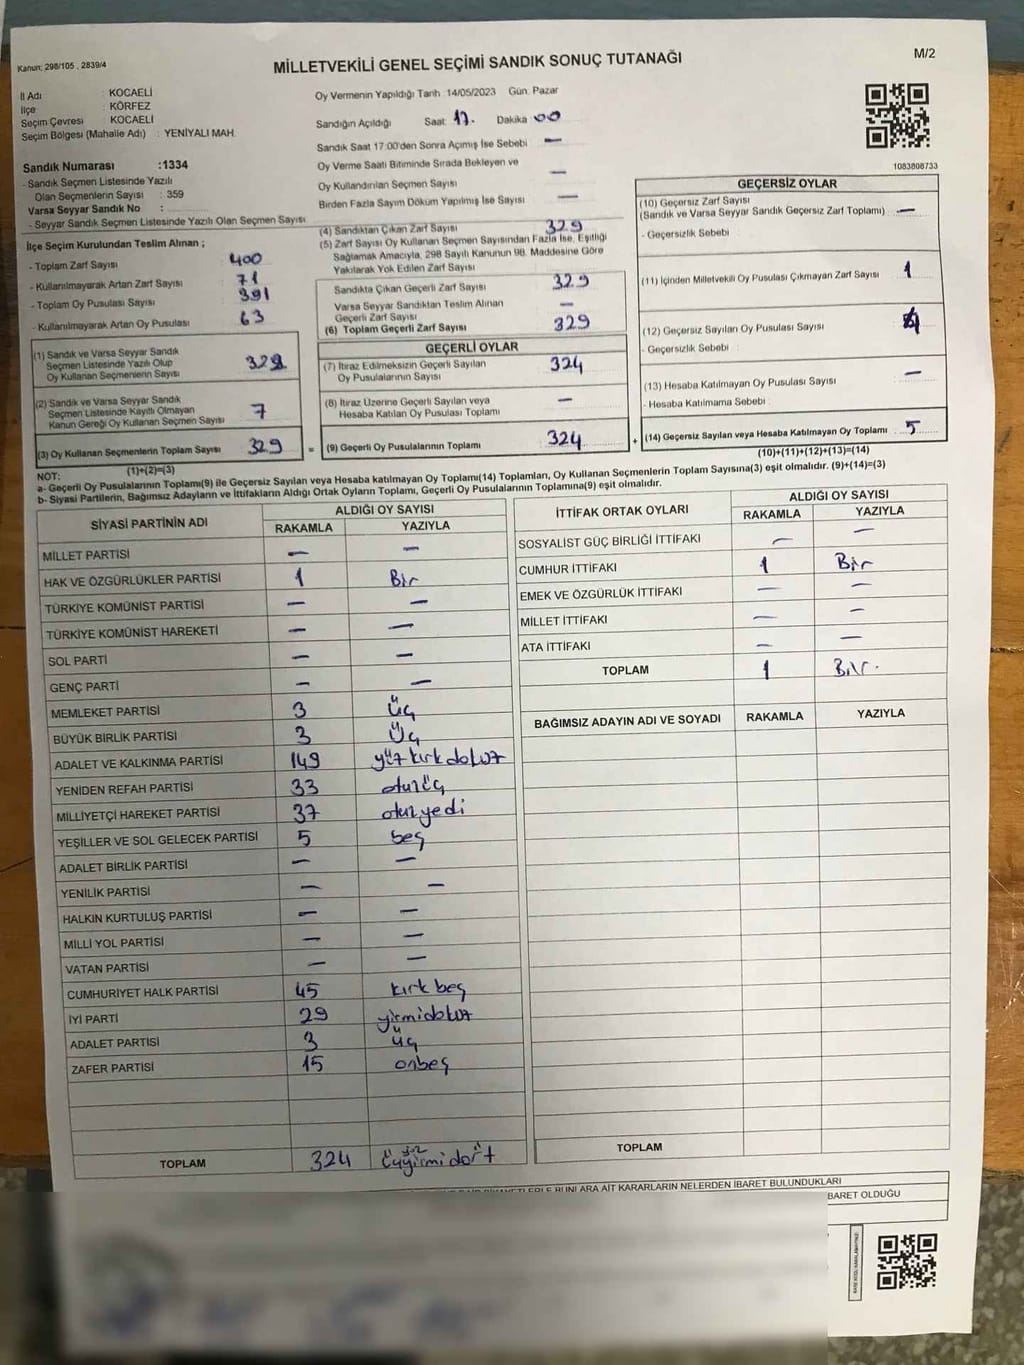 Kanun: 298/105 , 2839/4
MİLLETVEKİLİ GENEL SEÇİMİ SANDIK SONUÇ TUTANAĞI
M/2
İl Adı : KOCAELİ
İlçe : KÖRFEZ
Seçim Çevresi : KOCAELİ
Seçim Bölgesi (Mahalle Adı) : YENİYALI MAH.
Sandık Numarası :1334
- Sandık Seçmen Listesinde Yazılı
Olan Seçmenlerin Sayısı : 359
Varsa Seyyar Sandık No :
- Seyyar Sandık Seçmen Listesinde Yazılı Olan Seçmen Sayısı
Oy Vermenin Yapıldığı Tarih :14/05/2023 Gün: Pazar
Sandığın Açıldığı Saat: 17. Dakika 00
Sandık Saat 17:00'den Sonra Açımış İse Sebebi —
Oy Verme Saati Bitiminde Sırada Bekleyen ve
Oy Kullandırılan Seçmen Sayısı —
Birden Fazla Sayım Döküm Yapılmış İse Sayısı —
1083808733
İlçe Seçim Kurulundan Teslim Alınan ;
- Toplam Zarf Sayısı 400
- Kullanılmayarak Artan Zarf Sayısı 71
- Toplam Oy Pusulası Sayısı 391
- Kullanılmayarak Artan Oy Pusulası 63
(1) Sandık ve Varsa Seyyar Sandık
Seçmen Listesinde Yazılı Olup
Oy Kullanan Seçmenlerin Sayısı
(2) Sandık ve Varsa Seyyar Sandık
Seçmen Listesinde Kayıtlı Olmayan
Kanun Gereği Oy Kullanan Seçmen Sayısı 7
(3) Oy Kullanan Seçmenlerin Toplam Sayısı 329 =
(1)+(2)=(3)
(4) Sandıktan Çıkan Zarf Sayısı 329
(5) Zarf Sayısı Oy Kullanan Seçmen Sayısından Fazla İse, Eşitliği
Sağlamak Amacıyla, 298 Sayılı Kanunun 98. Maddesine Göre
Yakılarak Yok Edilen Zarf Sayısı
Sandıkta Çıkan Geçerli Zarf Sayısı 329
Varsa Seyyar Sandıktan Teslim Alınan
Geçerli Zarf Sayısı —
(6) Toplam Geçerli Zarf Sayısı 329
GEÇERLİ OYLAR
(7) İtiraz Edilmeksizin Geçerli Sayılan
Oy Pusulalarının Sayısı 324
(8) İtiraz Üzerine Geçerli Sayılan veya
Hesaba Katılan Oy Pusulası Toplamı —
(9) Geçerli Oy Pusulalarının Toplamı 324 +
GEÇERSİZ OYLAR
(10) Geçersiz Zarf Sayısı
(Sandık ve Varsa Seyyar Sandık Geçersiz Zarf Toplamı) —
- Geçersizlik Sebebi :
(11) İçinden Milletvekili Oy Pusulası Çıkmayan Zarf Sayısı 1
(12) Geçersiz Sayılan Oy Pusulası Sayısı
- Geçersizlik Sebebi :
(13) Hesaba Katılmayan Oy Pusulası Sayısı —
- Hesaba Katılmama Sebebi :
(14) Geçersiz Sayılan veya Hesaba Katılmayan Oy Toplamı 5
(10)+(11)+(12)+(13)=(14)
NOT:
a- Geçerli Oy Pusulalarının Toplamı(9) ile Geçersiz Sayılan veya Hesaba katılmayan Oy Toplamı(14) Toplamları, Oy Kullanan Seçmenlerin Toplam Sayısına(3) eşit olmalıdır. (9)+(14)=(3)
b- Siyasi Partilerin, Bağımsız Adayların ve İttifakların Aldığı Ortak Oyların Toplamı, Geçerli Oy Pusulalarının Toplamına(9) eşit olmalıdır.
SİYASİ PARTİNİN ADI ALDIĞI OY SAYISI
RAKAMLA YAZIYLA
MİLLET PARTİSİ — —
HAK VE ÖZGÜRLÜKLER PARTİSİ 1 Bir
TÜRKİYE KOMÜNİST PARTİSİ — —
TÜRKİYE KOMÜNİST HAREKETİ — —
SOL PARTİ — —
GENÇ PARTİ — —
MEMLEKET PARTİSİ 3 üç
BÜYÜK BİRLİK PARTİSİ 3 Üç
ADALET VE KALKINMA PARTİSİ 149 yüz kırk dokuz
YENİDEN REFAH PARTİSİ 33 otuzüç
MİLLİYETÇİ HAREKET PARTİSİ 37 otuzyedi
YEŞİLLER VE SOL GELECEK PARTİSİ 5 beş
ADALET BİRLİK PARTİSİ — —
YENİLİK PARTİSİ — —
HALKIN KURTULUŞ PARTİSİ — —
MİLLİ YOL PARTİSİ — —
VATAN PARTİSİ — —
CUMHURİYET HALK PARTİSİ 45 kırk beş
İYİ PARTİ 29 yirmidokuz
ADALET PARTİSİ 3 üç
ZAFER PARTİSİ 15 onbeş
TOPLAM 324
İTTİFAK ORTAK OYLARI ALDIĞI OY SAYISI
RAKAMLA YAZIYLA
SOSYALİST GÜÇ BİRLİĞİ İTTİFAKI — —
CUMHUR İTTİFAKI 1 Bir
EMEK VE ÖZGÜRLÜK İTTİFAKI — —
MİLLET İTTİFAKI — —
ATA İTTİFAKI — —
TOPLAM 1 Bir.
BAĞIMSIZ ADAYIN ADI VE SOYADI RAKAMLA YAZIYLA
TOPLAM
ARA AİT KARARLARIN NELERDEN İBARET BULUNDUKLARI
BARET OLDUĞU